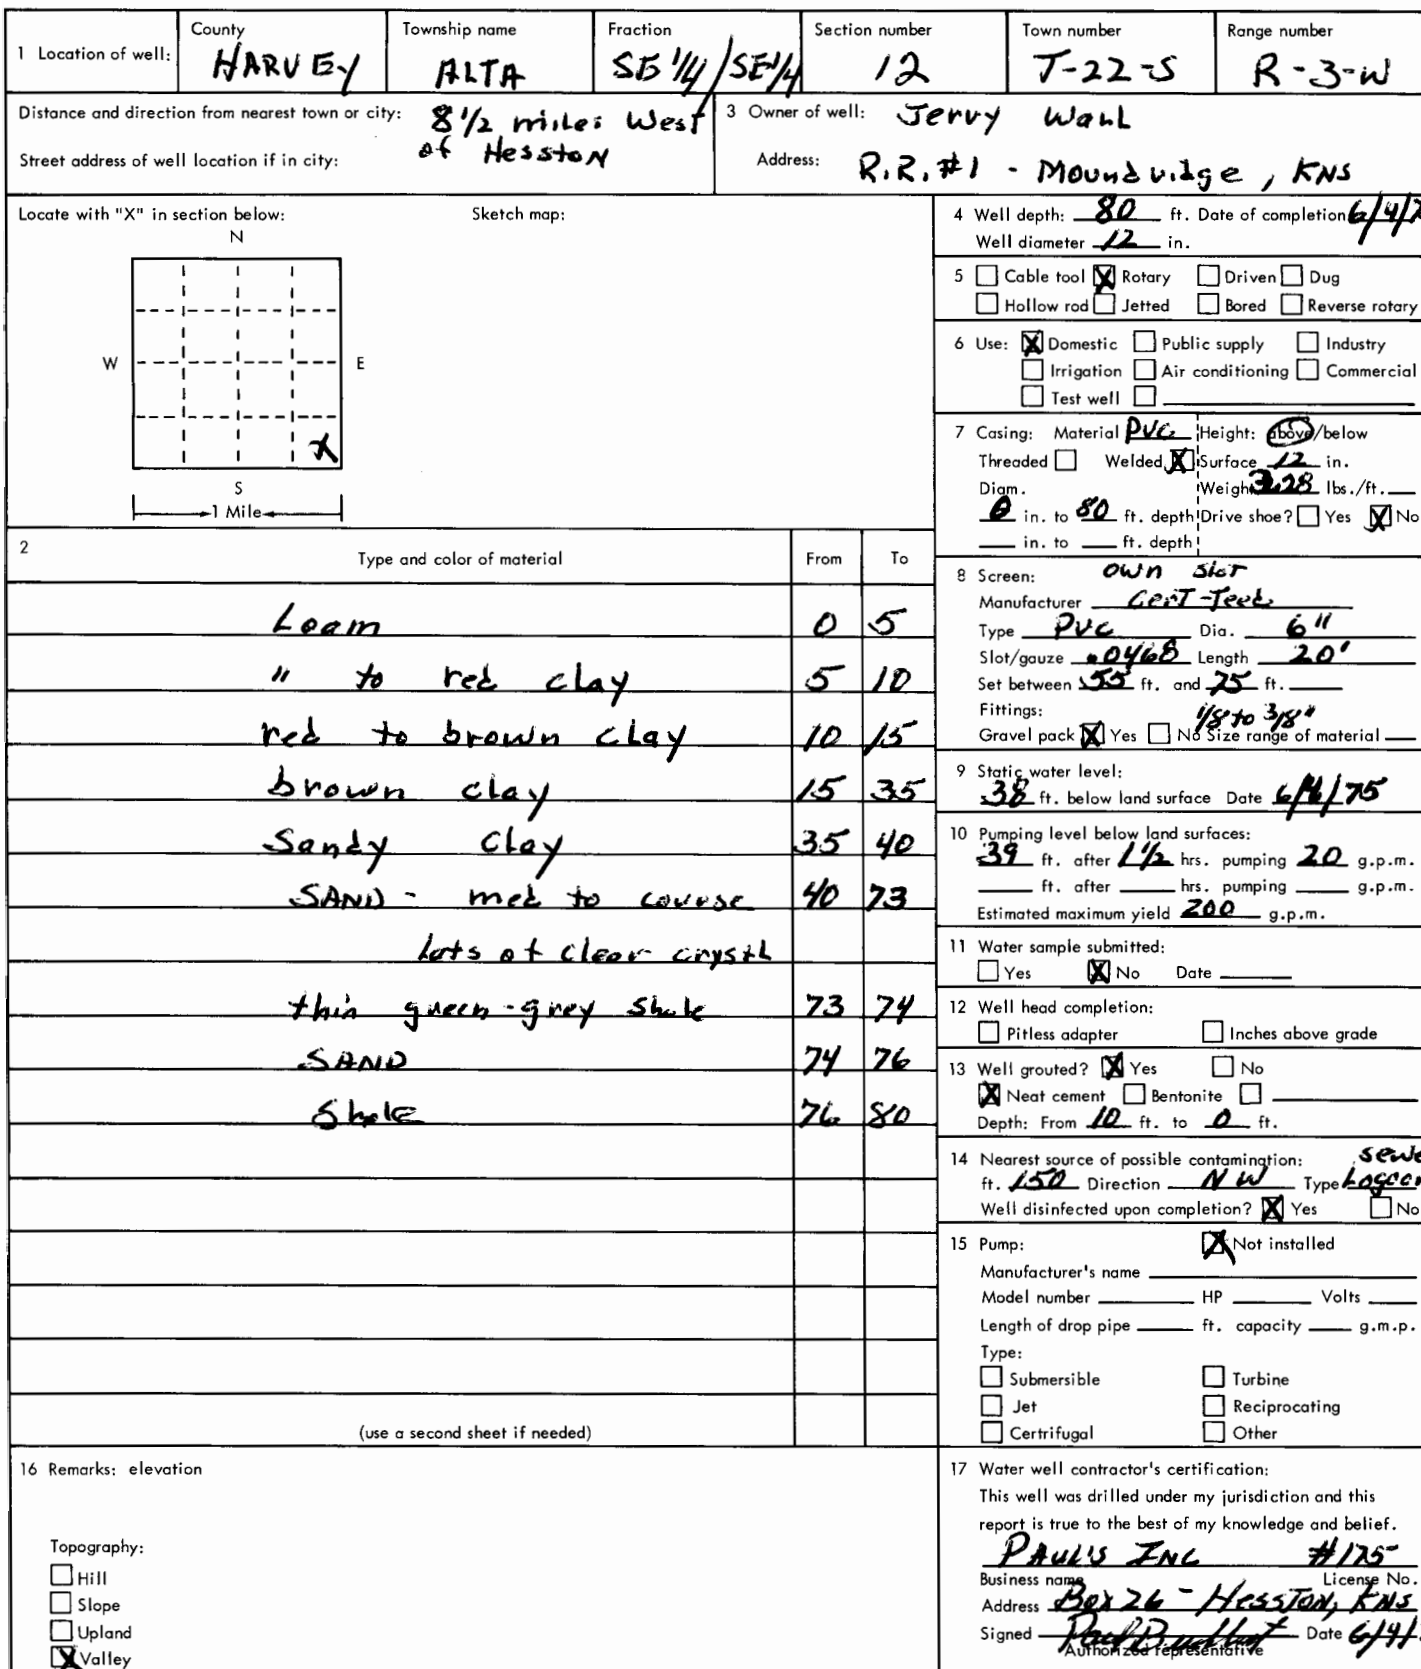 1 Location of well: County HARVEY Township name ALTA Fraction SE 1/4 / SE 1/4 Section number 12 Town number T-22-S Range number R-3-W
Distance and direction from nearest town or city: 8 1/2 miles West
of Hesston
Street address of well location if in city:
3 Owner of well: Jerry Wahl
Address: R.R.#1 - Moundridge, KNS
Locate with "X" in section below: Sketch map:
N
W E
X
S
1 Mile
2 Type and color of material From To
Loam 0 5
" to red clay 5 10
red to brown clay 10 15
brown clay 15 35
Sandy Clay 35 40
SAND - med to course 40 73
lots of clear
thin green-grey shale 73 74
SAND 74 76
Shale 76 80
(use a second sheet if needed)
16 Remarks: elevation
Topography:
Hill
Slope
Upland
X Valley
4 Well depth: 80 ft. Date of completion 6/4/7
Well diameter 12 in.
5 Cable tool X Rotary Driven Dug
Hollow rod Jetted Bored Reverse rotary
6 Use: X Domestic Public supply Industry
Irrigation Air conditioning Commercial
Test well
7 Casing: Material PVC Height: above/below
Threaded Welded X Surface 12 in.
Diam. Weight 3.28 lbs./ft.
in. to 80 ft. depth Drive shoe? Yes X No
in. to ft. depth
8 Screen: own slot
Manufacturer Cert-Teed
Type PVC Dia. 6"
Slot/gauze .0468 Length 20'
Set between 55 ft. and 75 ft.
Fittings: 1/8 to 3/8"
Gravel pack X Yes No Size range of material
9 Static water level:
38 ft. below land surface Date 6/ /75
10 Pumping level below land surfaces:
39 ft. after 1 1/2 hrs. pumping 20 g.p.m.
ft. after hrs. pumping g.p.m.
Estimated maximum yield 200 g.p.m.
11 Water sample submitted:
Yes X No Date
12 Well head completion:
Pitless adapter Inches above grade
13 Well grouted? X Yes No
X Neat cement Bentonite
Depth: From 10 ft. to 0 ft.
14 Nearest source of possible contamination: sewe
ft. 150 Direction NW Type Lagoon
Well disinfected upon completion? X Yes No
15 Pump: X Not installed
Manufacturer's name
Model number HP Volts
Length of drop pipe ft. capacity g.m.p.
Type:
Submersible Turbine
Jet Reciprocating
Certrifugal Other
17 Water well contractor's certification:
This well was drilled under my jurisdiction and this
report is true to the best of my knowledge and belief.
PAUL'S INC #175
Business name License No.
Address Box 26 - Hesston, KNS
Signed Date 6/4/
Authorized representative